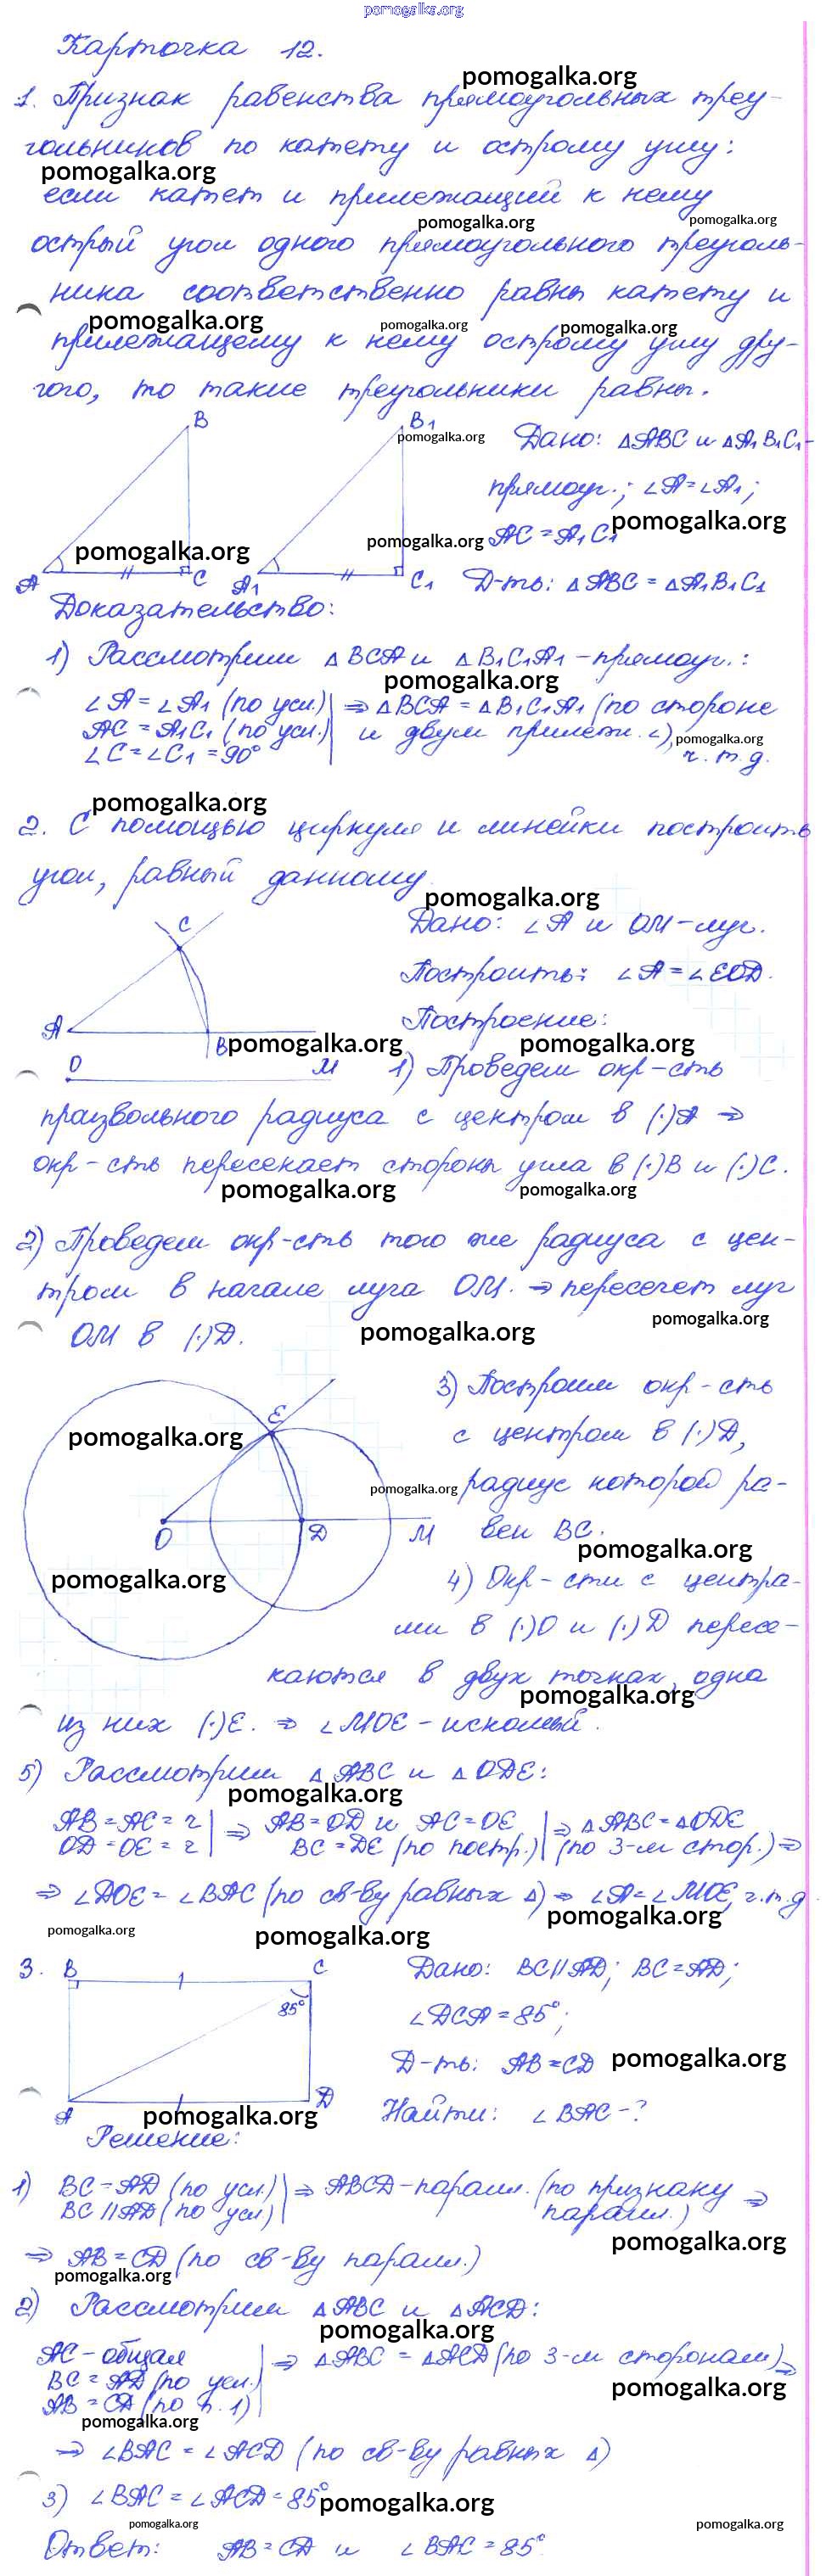 pomogalka.org
Карточка 12.
pomogalka.org
1. Признак равенства прямоугольных треу-
гольников по катету и острому углу:
pomogalka.org
если катет и прилежащий к нему
pomogalka.org pomogalka.org
острый угол одного прямоугольного треуголь-
ника соответственно равны катету и
pomogalka.org pomogalka.org pomogalka.org
прилежащему к нему острому углу дру-
гого, то такие треугольники равны.
B B1
pomogalka.org
Дано: △ABC и △A1B1C1-
прямоуг.; ∠A=∠A1;
pomogalka.org
AC=A1C1
pomogalka.org pomogalka.org
A C A1 C1 Д-ть: △ABC = △A1B1C1
Доказательство:
1) Рассмотрим △BCA и △B1C1A1 - прямоуг.:
pomogalka.org
∠A = ∠A1 (по усл.) ⇒ △BCA = △B1C1A1 (по стороне
AC = A1C1 (по усл.) и двум прилеж. ∠),
pomogalka.org
∠C = ∠C1 = 90° ч.т.д.
pomogalka.org
2. С помощью циркуля и линейки построить
угол, равный данному
pomogalka.org
C Дано: ∠A и OM-луч.
Построить: ∠A = ∠EOD.
A Построение:
B pomogalka.org pomogalka.org
O M 1) Проведем окр-сть
праизвольного радиуса с центром в (·)A ⇒
окр-сть пересекает стороны угла в (·)B и (·)C.
pomogalka.org pomogalka.org
2) Проведем окр-сть того же радиуса с цен-
тром в начале луча OM. ⇒ пересечет луч
pomogalka.org
OM в (·)D.
pomogalka.org
3) Построим окр-сть
E
pomogalka.org
с центром в (·)D,
pomogalka.org
радиус которой ра-
O D M вен BC.
pomogalka.org
pomogalka.org
4) Окр-сти с центра-
ми в (·)O и (·)D пересе-
каются в двух точках, одна
pomogalka.org
из них (·)E. ⇒ ∠MOE - искомый.
5) Рассмотрим △ABC и △ODE:
pomogalka.org
AB = AC = r ⇒ AB = OD и AC = OE ⇒ △ABC = △ODE
OD = OE = r BC = DE (по постр.) (по 3-м стор.) ⇒
⇒ ∠DOE = ∠BAC (по св-ву равных △) ⇒ ∠A = ∠MOE, ч.т.д
pomogalka.org
pomogalka.org pomogalka.org
3. B C Дано: BC||AD; BC=AD;
85° ∠DCA = 85°;
Д-ть: AB = CD
pomogalka.org
A D Найти: ∠BAC - ?
pomogalka.org
Решение:
1) BC = AD (по усл.) ⇒ ABCD - паралл. (по признаку
BC||AD (по усл) паралл.) ⇒
pomogalka.org
⇒ AB = CD (по св-ву паралл.)
pomogalka.org
2) Рассмотрим △ABC и △ACD:
pomogalka.org
AC - общая ⇒ △ABC = △ACD (по 3-м сторонам) ⇒
BC = AD (по усл.)
pomogalka.org
AB = CD (по п. 1)
pomogalka.org
⇒ ∠BAC = ∠ACD (по св-ву равных △)
3) ∠BAC = ∠ACD = 85°
pomogalka.org
pomogalka.org pomogalka.org
Ответ: AB = CD и ∠BAC = 85°